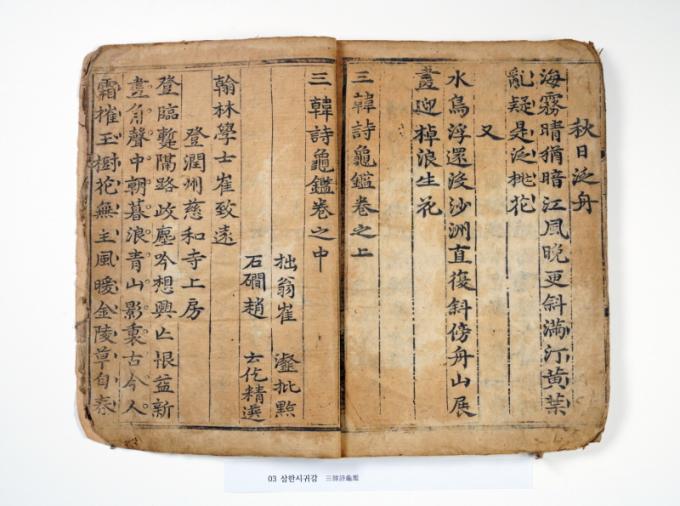 秋日泛舟
海霧晴猶暗江風晚更斜滿汀黃葉
亂疑是泛桃花
又
水鳥浮還沒沙洲直復斜傍舟山展
畫迎棹浪生花
三韓詩龜鑑卷之上
三韓詩龜鑑卷之中
拙翁崔 瀣批點
石磵趙 云仡精選
翰林學士崔致遠
登潤州慈和寺上房
登臨蹔隔路歧塵吟想興亡恨益新
畫角聲中朝暮浪青山影裏古今人
霜摧玉樹花無主風暖金陵草自春
03 삼한시귀감 三韓詩龜鑑